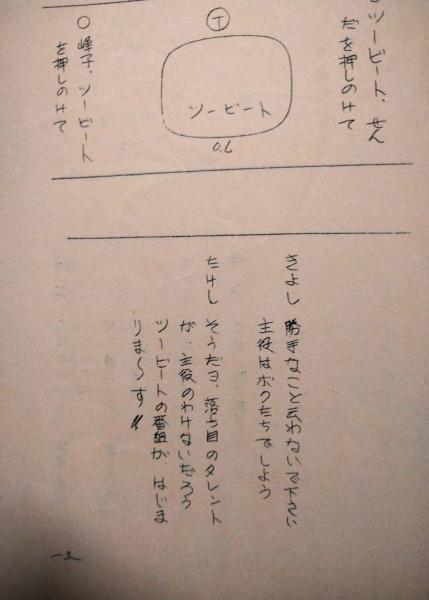 ○ツービート、せん
だを押しのけて
Ⓣ
ツービート
O.L
○峰子、ツービート
を押しのけて
きよし 勝手なこと云わないで下さい
主役はボクたちでしよう
たけし そうだヨ、落ち目のタレント
が、主役のわけないだろう
ツービートの番組が、はじま
りま〜す!!